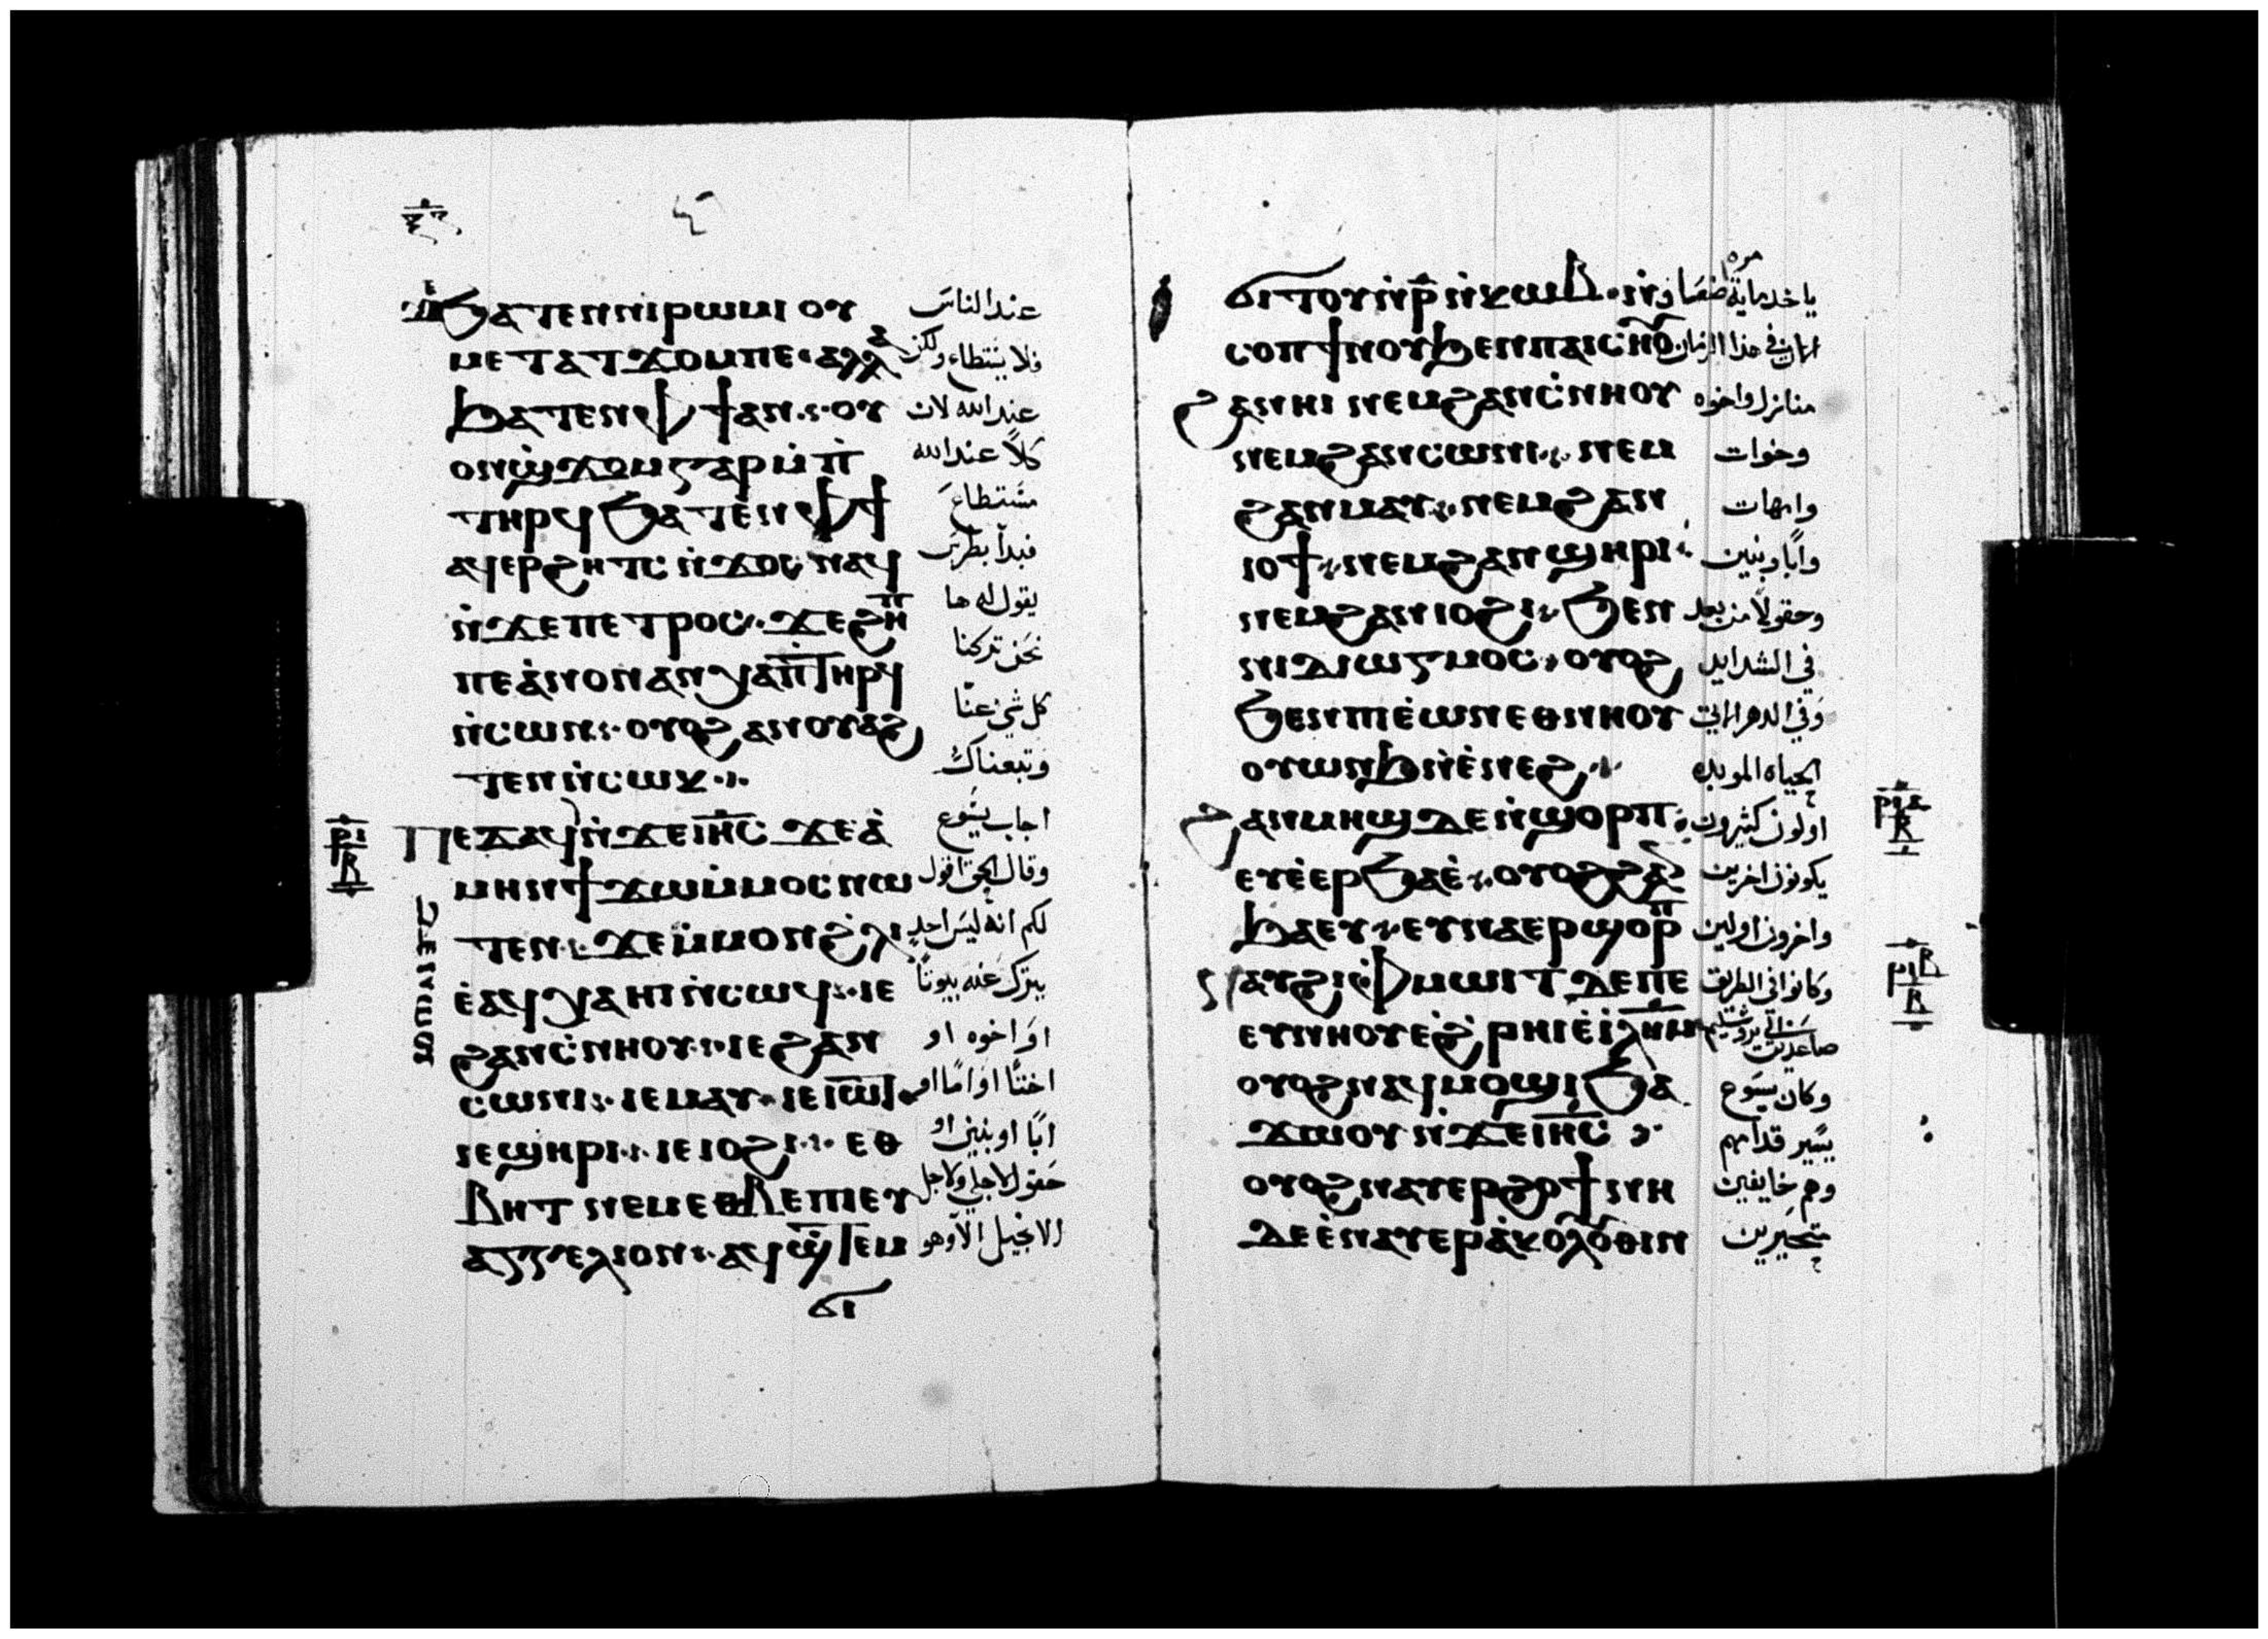 ϧⲁⲧⲉⲛⲛⲓⲣⲱⲙⲓ ⲟⲩ عند الناس
ⲙⲉⲧⲁⲧϫⲟⲙⲡⲉ· ⲁⲗⲗⲁ فلا يستطاع ولكن
ϧⲁⲧⲉⲛⲫϯ ⲁⲛ· ⲟⲩ عند الله لان
ⲟⲛϣϫⲟⲙ ⲅⲁⲣ ⲙ̇ⲡ̅ كلاً عند الله
ⲧⲏⲣϥ ϧⲁⲧⲉⲛⲫϯ مستطاع
ⲁϥⲉⲣϩⲏⲧⲥ ⲛ̇ϫⲟⲥ ⲛⲁϥ فبدأ بطرس
ⲛ̇ϫⲉⲡⲉⲧⲣⲟⲥ· ϫⲉϩⲏ̅ⲡ̅ يقول له ها
ⲡⲉ ⲁ̇ⲛⲟⲛ ⲁⲛⲭⲁⲡ̅ⲧⲏⲣϥ نحن تركنا
ⲛ̇ⲥⲱⲛ· ⲟⲩⲟϩ ⲁⲛⲟⲩⲁϩ كل شي عنا
ⲧⲉⲛ ⲛ̇ⲥⲱⲕ· وتبعناك
ⲡⲉϫⲁϥ ⲛ̇ϫⲉⲓⲏ̅ⲥ ϫⲉⲁ̇ اجاب يسوع
ⲙⲏⲛ ϯϫⲱⲙ̇ⲙⲟⲥ ⲛⲱ وقال الحق اقول
ⲧⲉⲛ· ϫⲉ ⲙ̇ⲙⲟⲛ ϩ̇ⲗⲓ لكم انه ليس احد
ⲉ̇ⲁϥⲭⲁ ⲏⲓ ⲛ̇ⲥⲱϥ· ⲓⲉ يترك عنه بيوتاً
ϩⲁⲛⲥ̇ⲛⲏⲟⲩ· ⲓⲉ ϩⲁⲛ او اخوه او
ⲥⲱⲛⲓ· ⲓⲉ ⲙⲁⲩ· ⲓⲉ ⲓⲱ̅ⲧ اختًا او امًا او
ⲓⲉ ϣⲏⲣⲓ· ⲓⲉ ⲓⲟϩⲓ· ⲉⲑ ابًا او بنين او
ⲃⲏⲧ ⲛⲉⲙ ⲉⲑⲃⲉ ⲡⲓⲉⲩ حقول لاجلي ولاجل
ⲁⲅⲅⲉⲗⲓⲟⲛ· ⲁϥϣ̇ⲧⲉⲙ الانجيل الا وهو
ϭⲓ
ⲣⲓ
ⲃ
ϭⲓⲧⲟⲩ ⲛ̇ⲣ̅ ⲛ̇ⲕⲱⲃ· ⲛ̇ ياخد ماية ضعف
ⲥⲟⲡ ϯⲛⲟⲩ ϧⲉⲛ ⲡⲁⲓⲥⲏⲟⲩ في هذا الزمان
ϩⲁⲛⲏⲓ ⲛⲉⲙ ϩⲁⲛⲥ̇ⲛⲏⲟⲩ منازل واخوه
ⲛⲉⲙ ϩⲁⲛⲥⲱⲛⲓ· ⲛⲉⲙ وخوات
ϩⲁⲛⲙⲁⲩ· ⲛⲉⲙ ϩⲁⲛ وامهات
ⲓⲟϯ· ⲛⲉⲙ ϩⲁⲛϣⲏⲣⲓ· وابًا وبنين
ⲛⲉⲙ ϩⲁⲛⲓⲟϩⲓ· ϧⲉⲛ وحقولاً من بعد
ⲛⲓⲇⲓⲱⲅⲙⲟⲥ· ⲟⲩⲟϩ في الشدايد
ϧⲉⲛ ⲡⲓⲉ̇ⲱⲛ ⲉⲑⲛⲏⲟⲩ وفي الدهر الاتي
ⲟⲩⲱⲛϧ ⲛ̇ⲉ̇ⲛⲉϩ· الحياه الموبده
ϩⲁⲛⲙⲏϣ ⲇⲉ ⲛ̇ϣⲟⲣⲡ· اولون كثيرون
ⲉⲩⲉ̇ⲉⲣϧⲁⲉ̇· ⲟⲩⲟϩ ϩⲁⲛ يكونون اخرين
ϧⲁⲉⲩ· ⲉⲩⲛⲁⲉⲣϣⲟⲣⲡ̅ واخرون اولين
ⲛⲁⲩϩⲓ ⲫⲙⲱⲓⲧ ⲇⲉⲡⲉ وكانوا في الطريق
ⲉⲩⲛⲏⲟⲩ ⲉ̇ϩ̇ⲣⲏⲓ ⲉ̇ⲓ̇ⲗ̅ⲏ̅ⲙ صاعدين الى يروشليم
ⲟⲩⲟϩ ⲛⲁϥⲙⲟϣⲓ ϧⲁ وكان يسوع
ϫⲱⲟⲩ ⲛ̇ϫⲉⲓⲏ̅ⲥ يسير قدامهم
ⲟⲩⲟϩ ⲛⲁⲩⲉⲣϩⲟϯ ⲛⲏ وهم خايفين
ⲇⲉ ⲉ̇ⲛⲁⲩⲉⲣⲁ̇ⲕⲟⲗⲟⲑⲓⲛ متحيرين
ⲣⲓⲁ
ⲃ
ⲣⲓⲃ
ⲃ